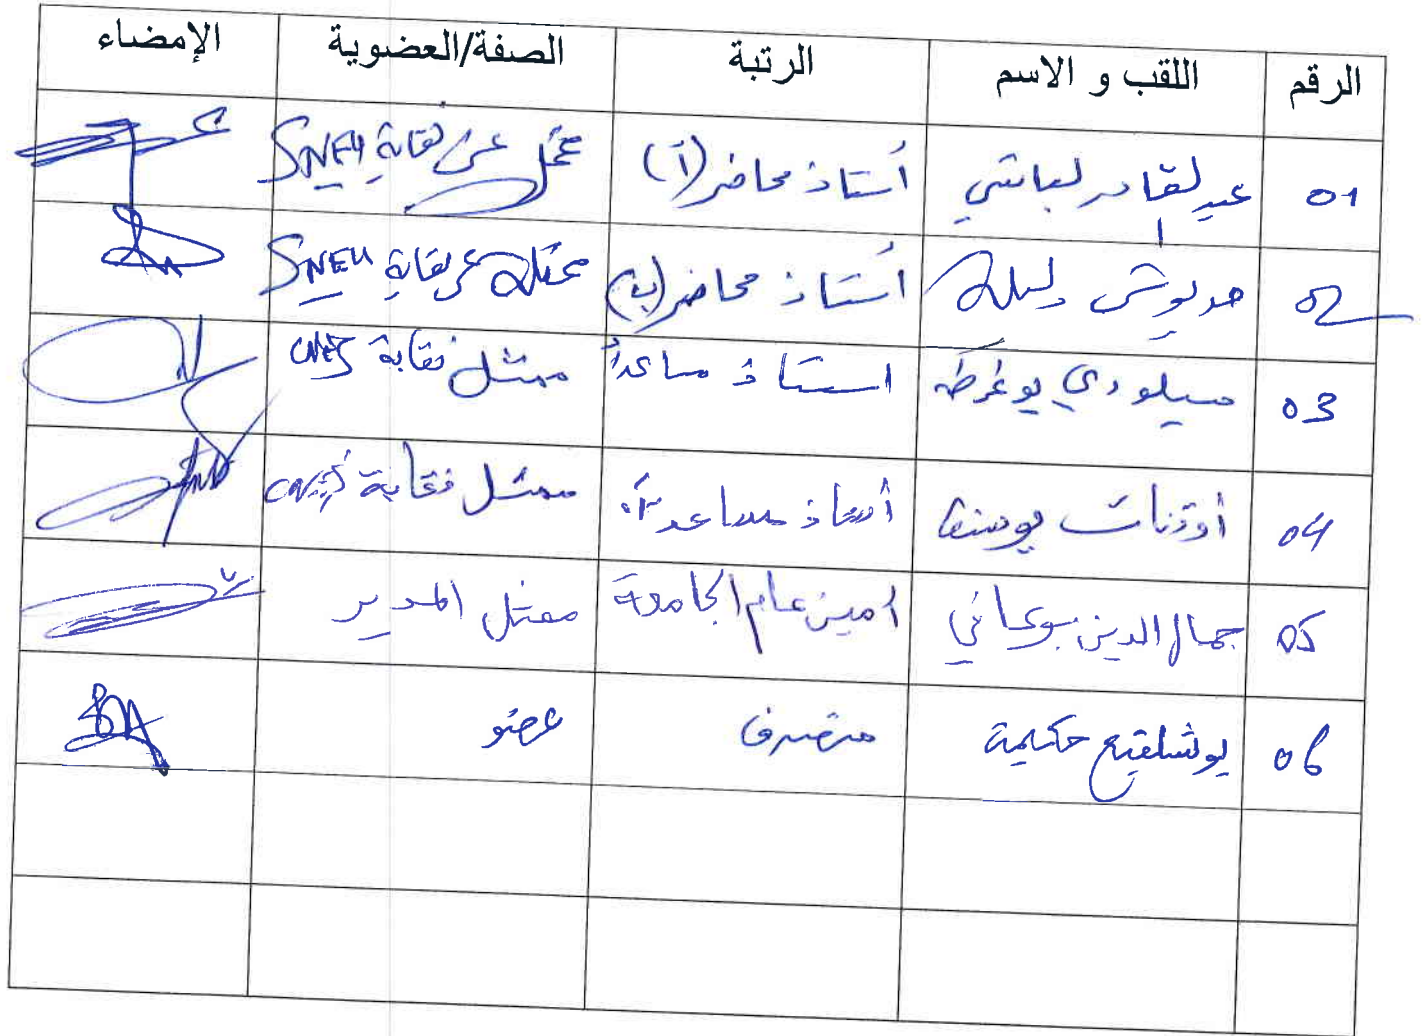 الرقم اللقب و الاسم الرتبة الصفة/العضوية الإمضاء
01 عبد القادر لباشي أستاذ محاضر (أ) ممثل عن نقابة SNEU
02 دليلة أستاذ محاضر (ب) ممثلة عن نقابة SNEU
03 ميلودي يوغرطة استاذ مساعد أ ممثل نقابة CNES
04 أستاذ مساعد أ ممثل نقابة CNES
05 جمال الدين أمين عام الجامعة ممثل المدير
06 حكيمة متصرف عضو